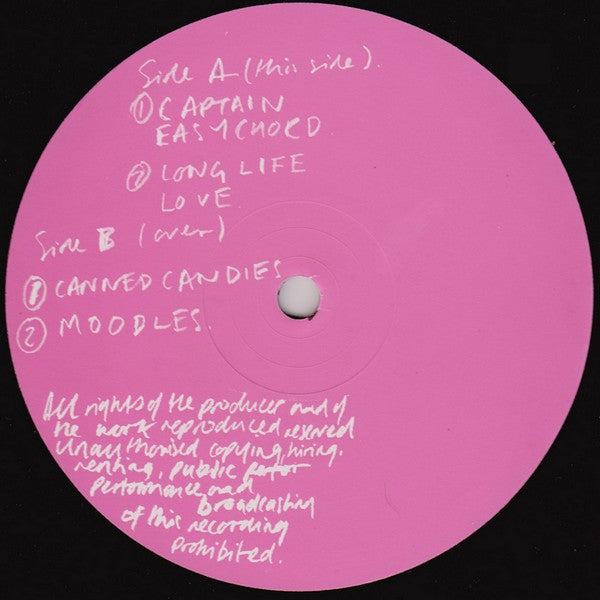 Side A (this side).
① CAPTAIN
EASYCHORD
② LONG LIFE
LOVE
Side B (over)
① CANNED CANDIES
② MOODLES.
All rights of the producer and of
the work reproduced reserved
Unauthorised copying, hiring.
renting, public
performance and
broadcasting
of this recording
prohibited.